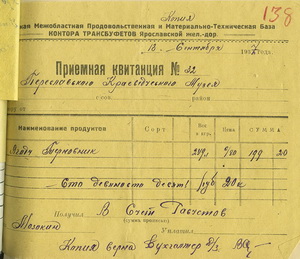 Копия
138
ная Межобластная Продовольственная и Материально-Техническая База
КОНТОРА ТРАНСБУФЕТОВ Ярославской жел.-дор.
18 Сентября 193 года.
Приемная квитанция № 22
Переславского Краеведческого Музея
с-сов. район
Наименование продуктов Сорт Вес в кгр. Цена СУММА
Ягоды 249 к 0/80 199 20
Сто девяносто девять руб 20 к
Получил В Счет
(сумма прописью)
Мазакин Уплатил
Копия верна Бухгалтер